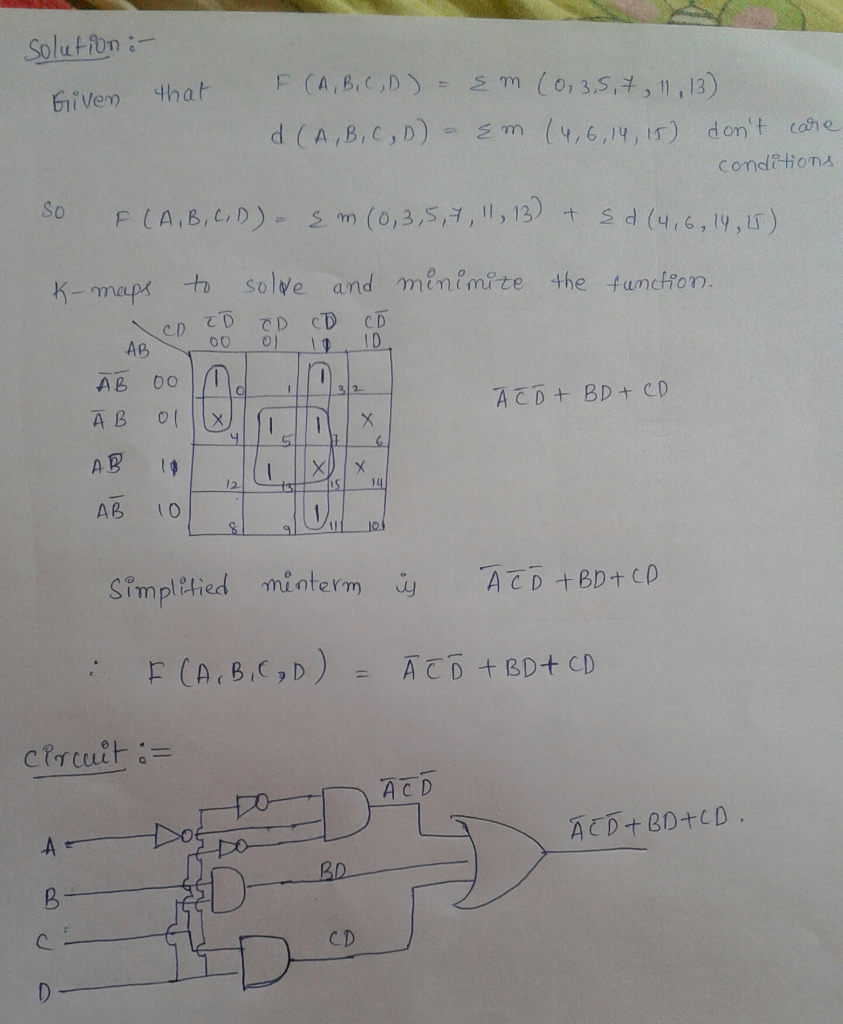 Solution :-
Given that F (A,B,C,D) = Σ m (0,3,5,7,11,13)
d (A,B,C,D) = Σm (4,6,14,15) don't care
conditions
So F (A,B,C,D) = Σ m (0,3,5,7,11,13) + Σ d (4,6,14,15)
K-maps to solve and minimize the function.
CD C̅D̅ C̅D CD CD̅
AB 00 01 11 10
A̅B̅ 00 1 0 1 1 3 2
A̅B 01 X 4 1 5 1 7 X 6
AB 11 12 1 13 X 15 X 14
AB̅ 10 8 9 1 11 10
A̅C̅D̅ + BD + CD
Simplified minterm is A̅C̅D̅ + BD + CD
∴ F (A,B,C,D) = A̅C̅D̅ + BD + CD
Circuit :=
A̅C̅D̅
A
A̅C̅D̅ + BD + CD.
BD
B
C
CD
D